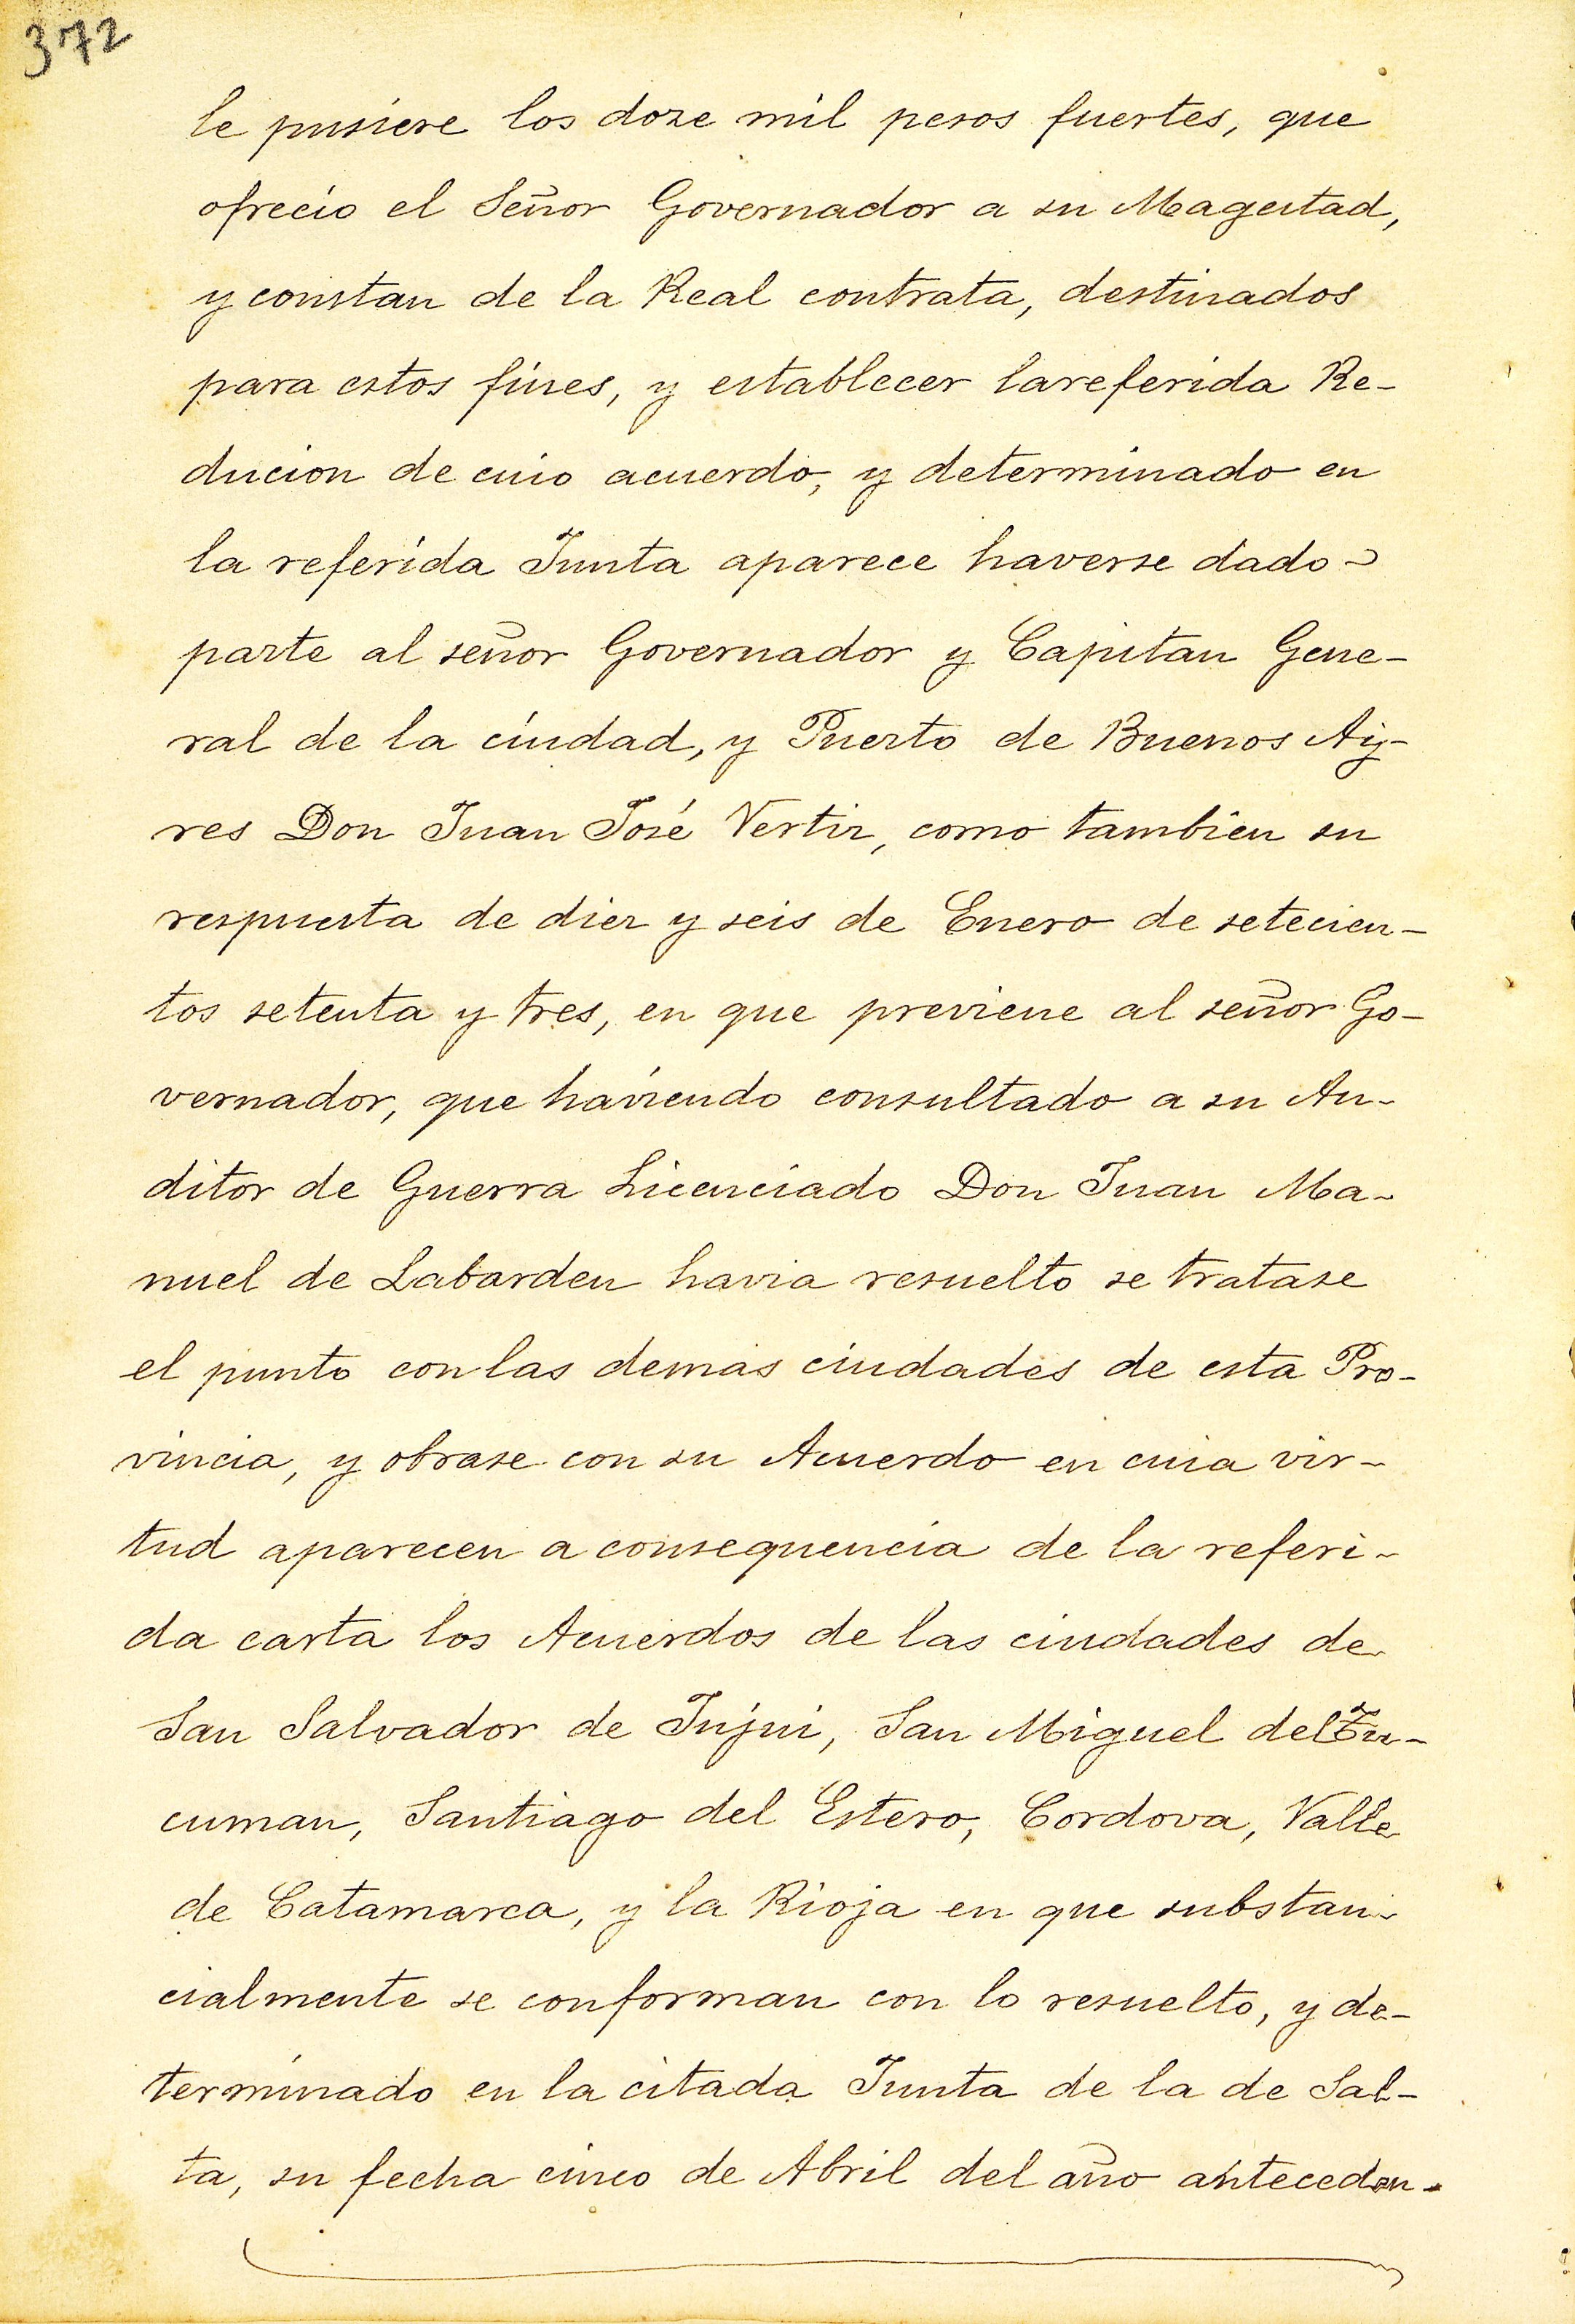 372
le pusiere los doze mil pesos fuertes, que
ofrecio el Señor Governador a su Magestad,
y constan de la Real contrata, destinados
para estos fines, y establecer lareferida Re-
ducion de cuio acuerdo, y determinado en
la referida Junta aparece haverse dado
parte al señor Governador y Capitan Gene-
ral de la ciudad, y Puerto de Buenos Ay-
res Don Juan José Vertiz, como tambien su
respuesta de diez y seis de Enero de setecien-
tos setenta y tres, en que previene al señor Go-
vernador, que haviendo consultado a su Au-
ditor de Guerra Licenciado Don Juan Ma-
nuel de Labarden havia resuelto se tratase
el punto con las demas ciudades de esta Pro-
vincia, y obrase con su Acuerdo en cuia vir-
tud aparecen a consequencia de la referi-
da carta los Acuerdos de las ciudades de
San Salvador de Jujui, San Miguel del Tu-
cuman, Santiago del Estero, Cordova, Valle
de Catamarca, y la Rioja en que substan-
cialmente se conforman con lo resuelto, y de-
terminado en la citada Junta de la de Sal-
ta, su fecha cinco de Abril del año anteceden-